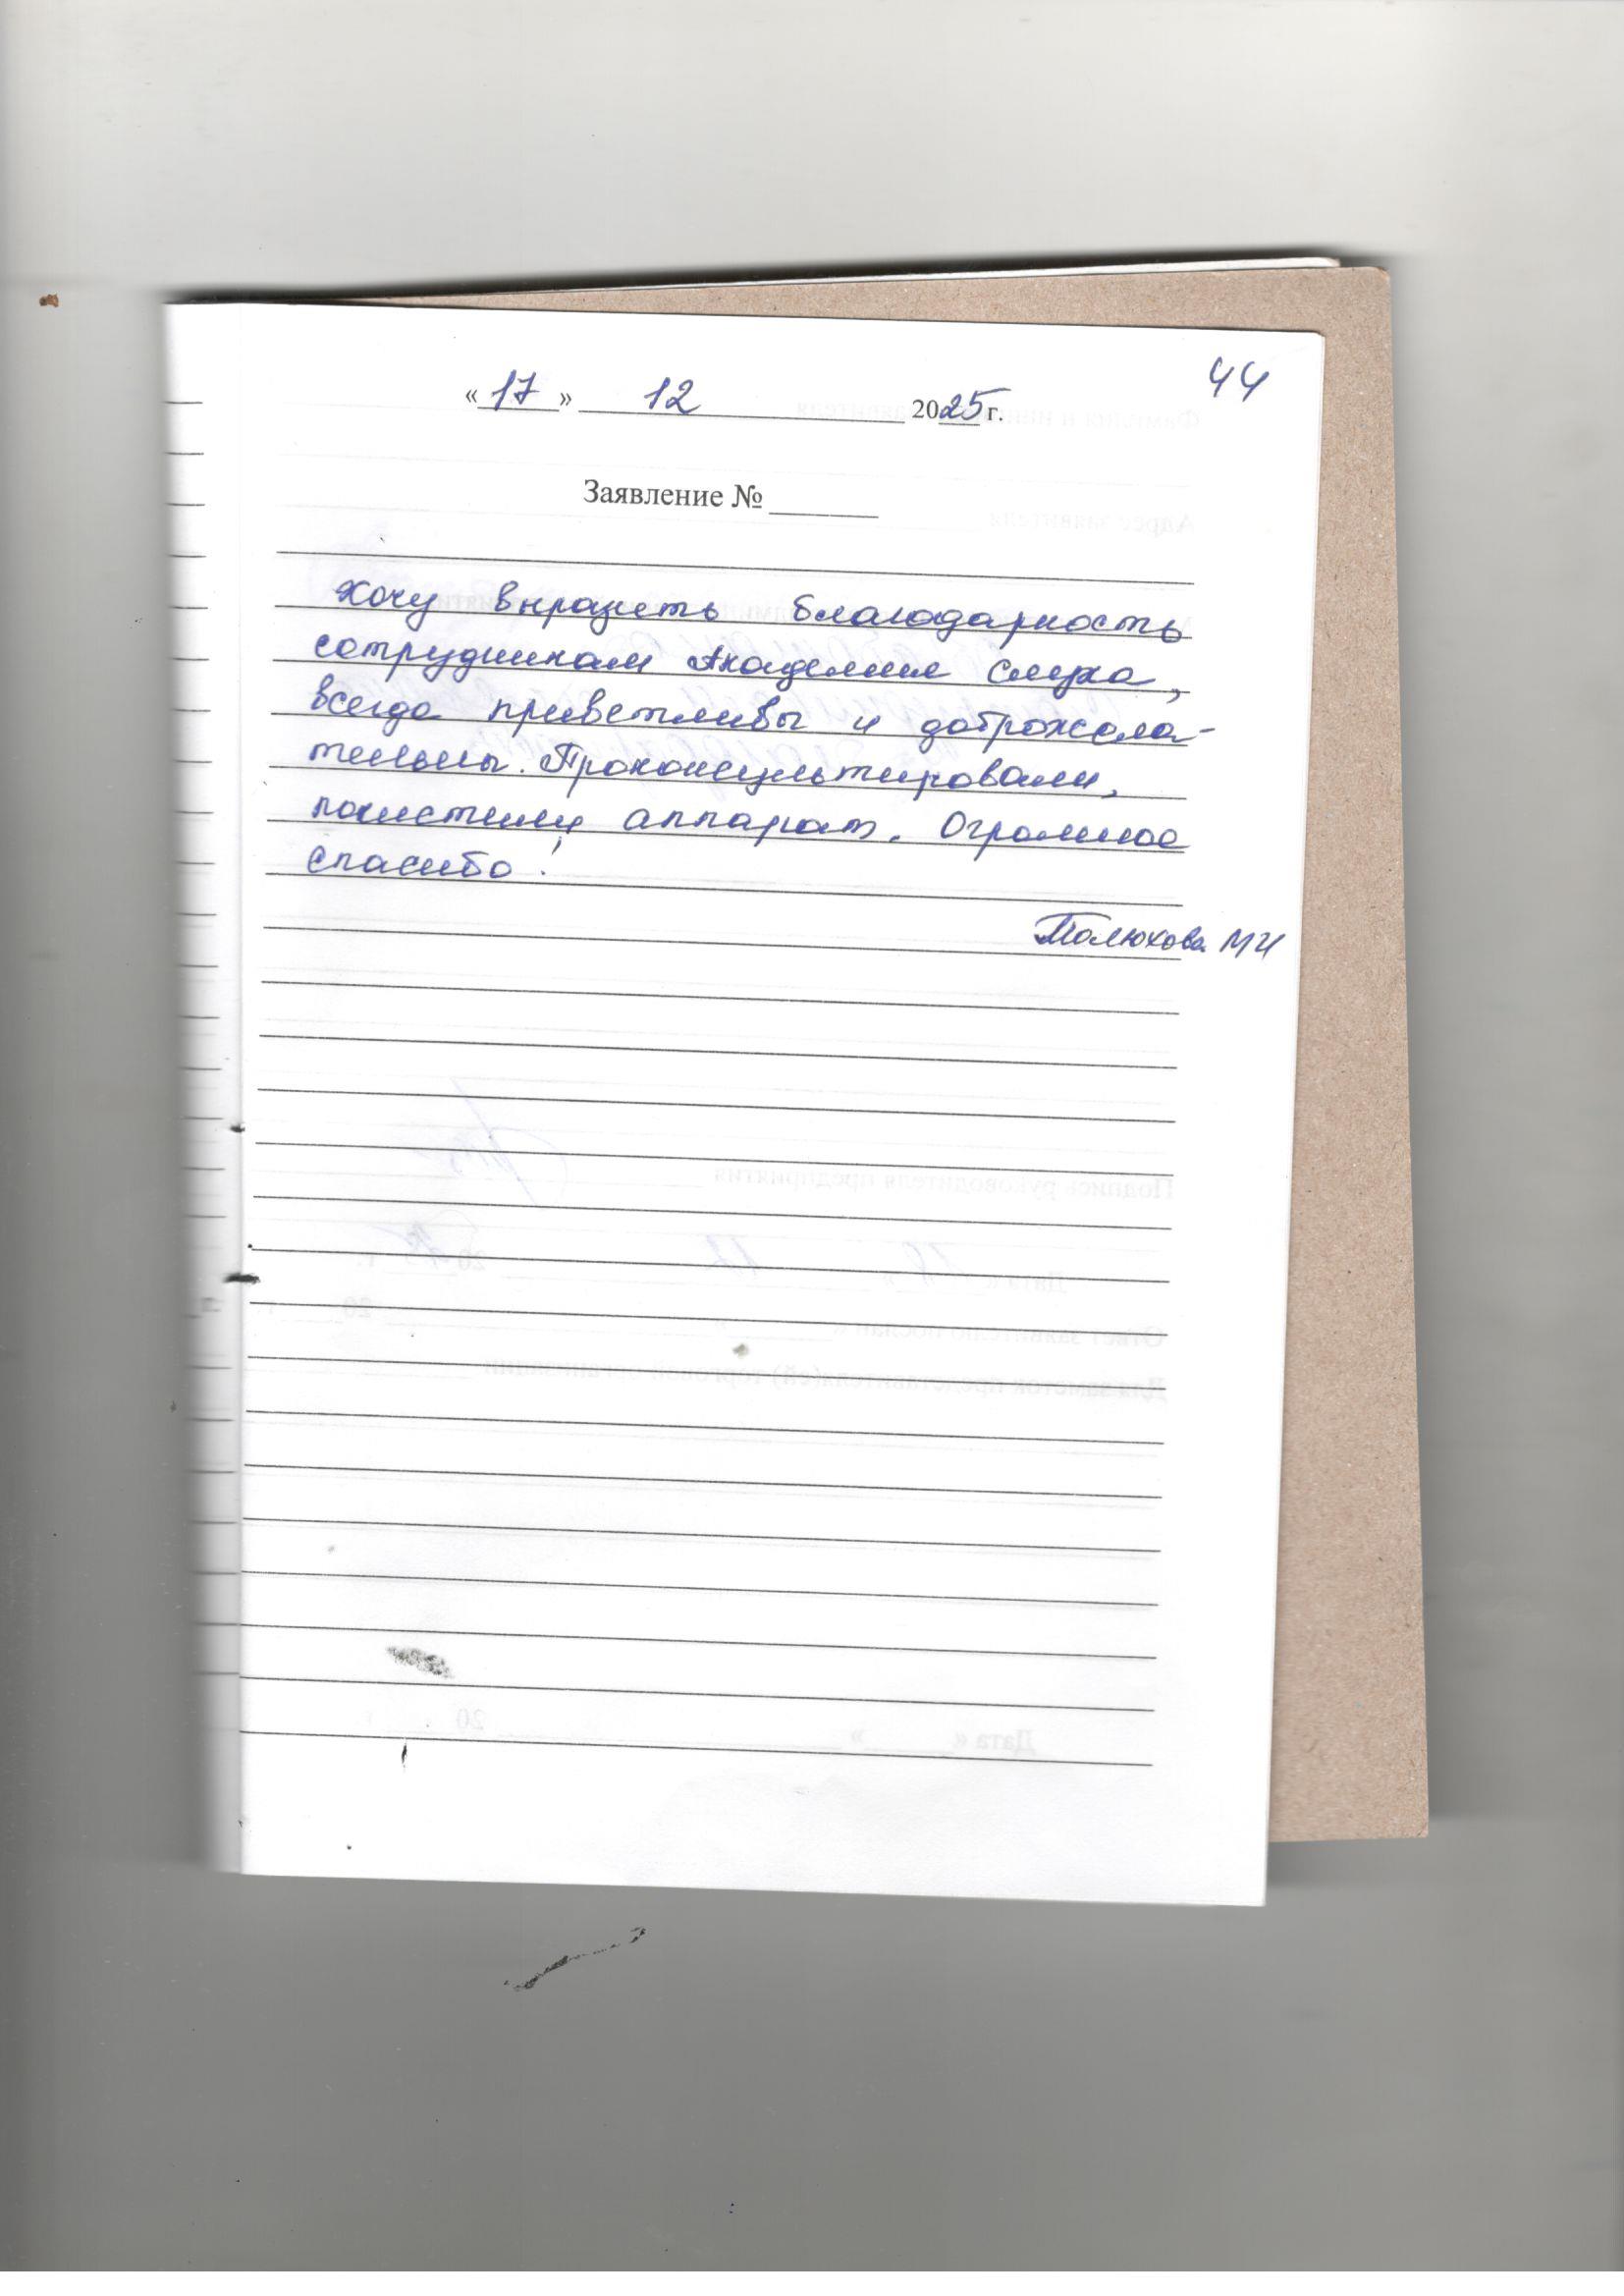 44
«17» 12 2025 г.
Заявление №
Хочу выразить благодарность
сотрудникам Академии Слуха,
всегда приветливы и доброжела-
тельны. Проконсультировали,
почистили аппарат. Огромное
спасибо!
Полюхова МИ